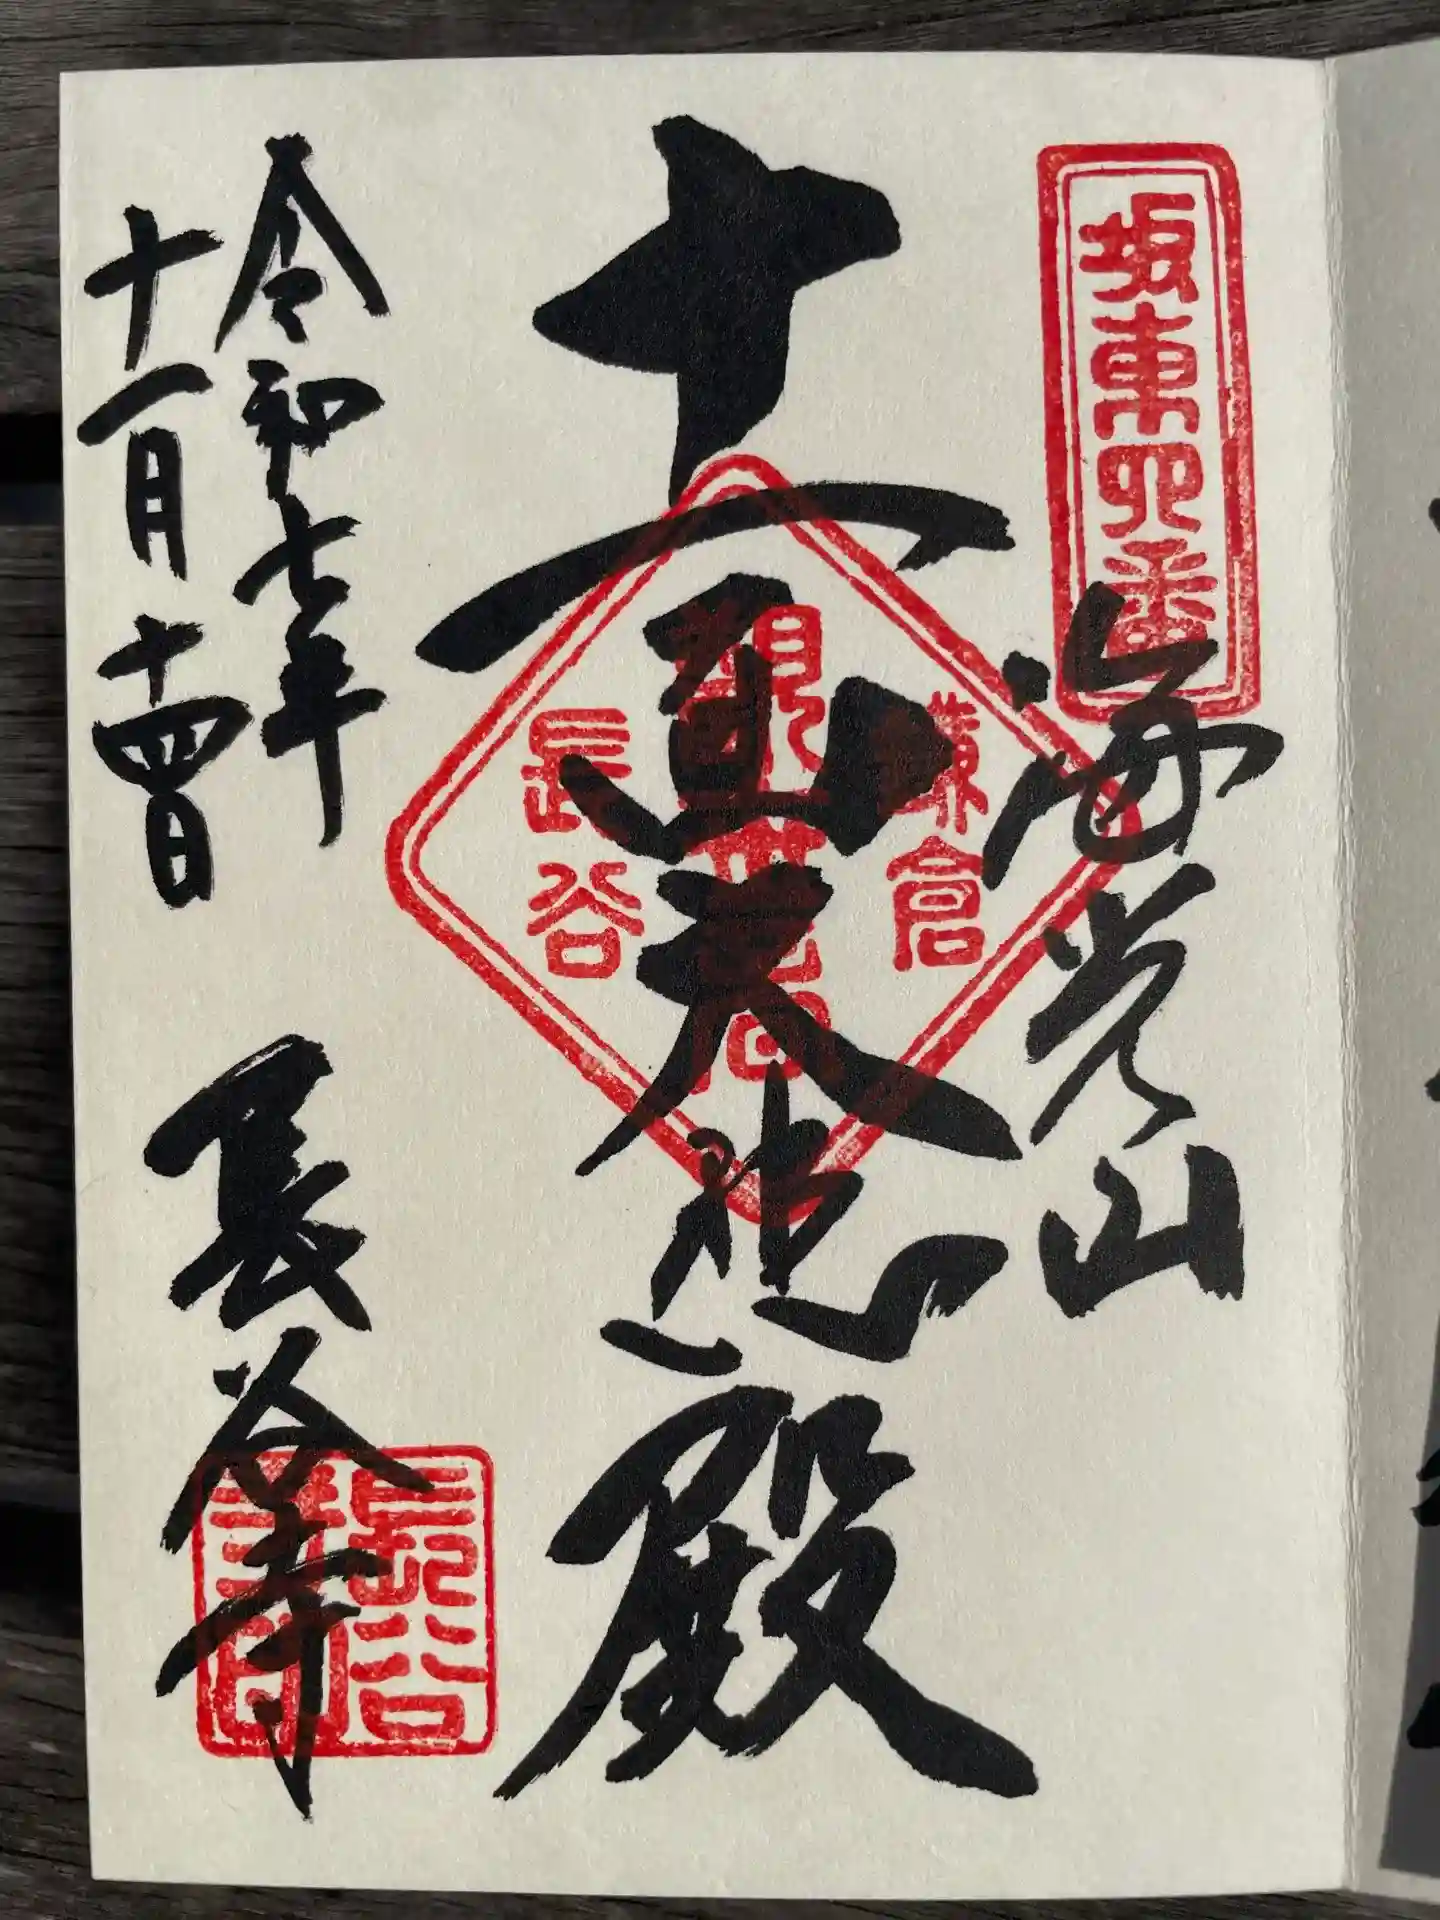 坂東四番
海光山
十一面大悲殿
鎌倉
観世音
長谷
令和七年
十一月十四日
長谷寺
長谷
寺印